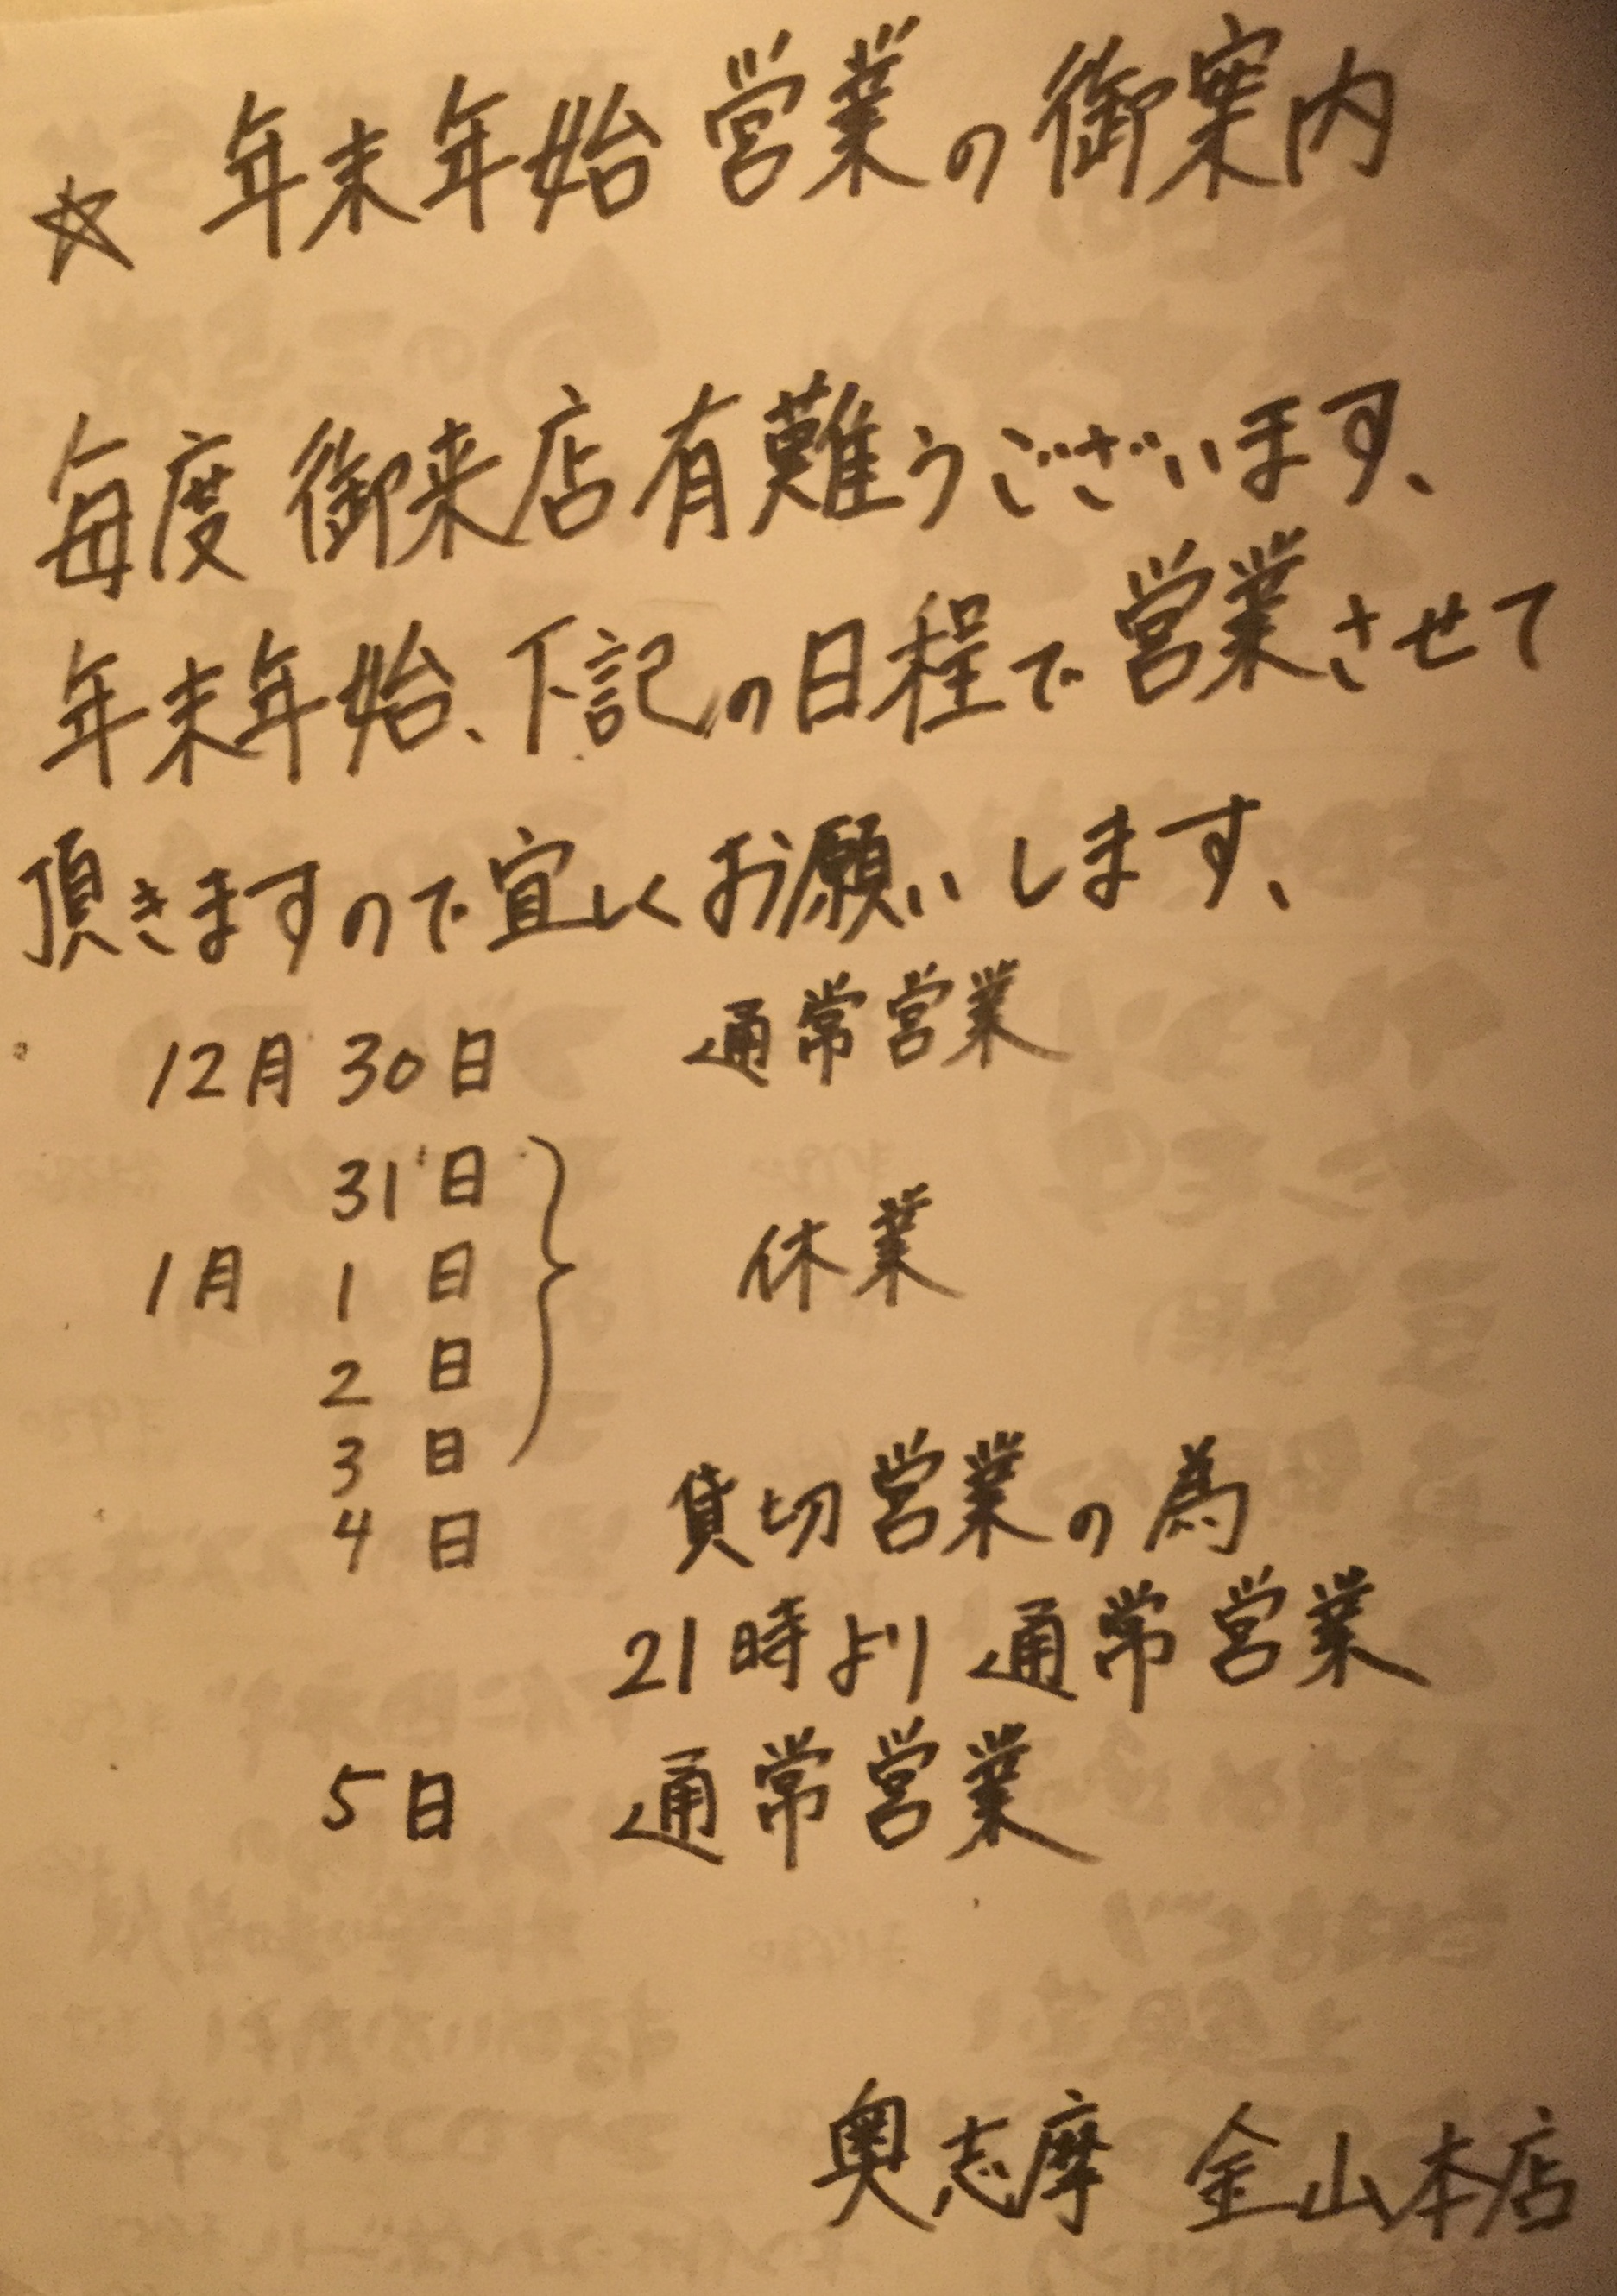 ☆ 年末年始 営業の御案内
毎度 御来店有難うございます、
年末年始、下記の日程で営業させて
頂きますので宜しくお願いします、
12月 30日 通常営業
31日
1月 1日 休業
2日
3日
4日 貸切営業の為
21時より 通常営業
5日 通常営業
奥志摩 金山本店